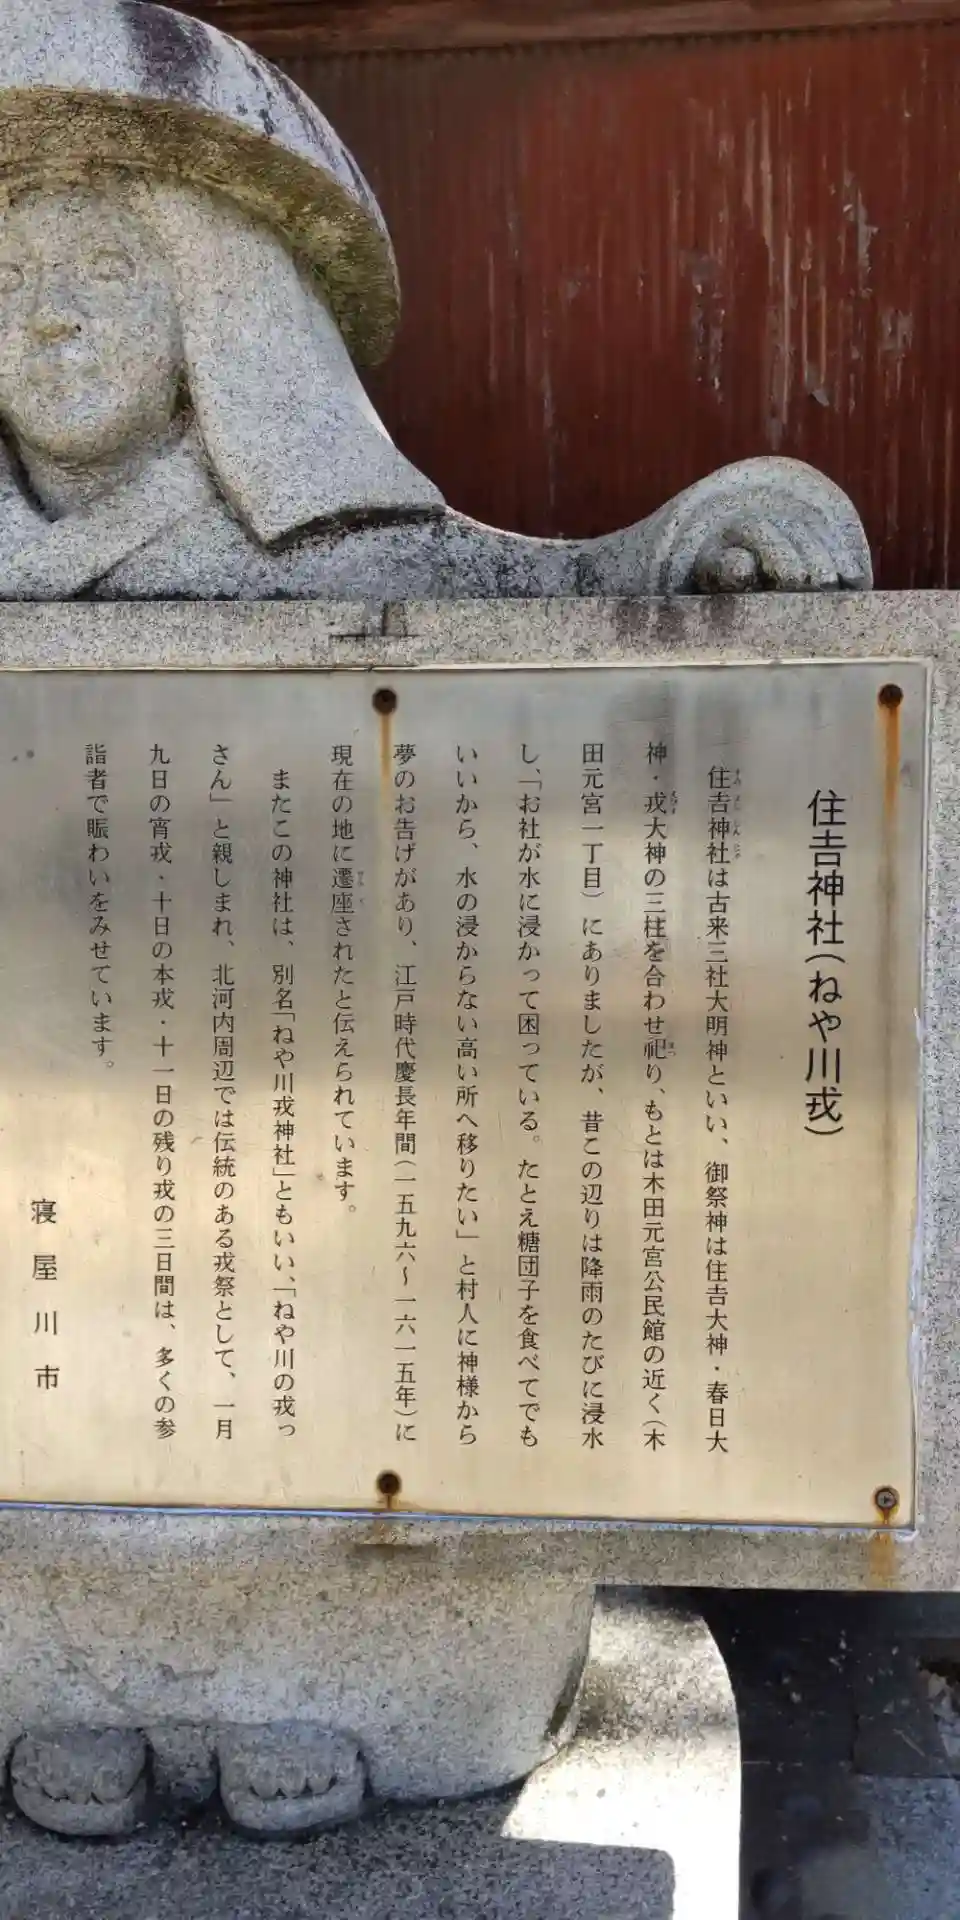 住吉神社(ねや川戎)
住吉神社は古来三社大明神といい、御祭神は住吉大神・春日大
神・戎大神の三柱を合わせ祀り、もとは木田元宮公民館の近く(木
田元宮一丁目)にありましたが、昔この辺りは降雨のたびに浸水
し、「お社が水に浸かって困っている。たとえ糖団子を食べてでも
いいから、水の浸からない高い所へ移りたい」と村人に神様から
夢のお告げがあり、江戸時代慶長年間(一五九六〜一六一五年)に
現在の地に遷座されたと伝えられています。
またこの神社は、別名「ねや川戎神社」ともいい、「ねや川の戎っ
さん」と親しまれ、北河内周辺では伝統のある戎祭として、一月
九日の宵戎・十日の本戎・十一日の残り戎の三日間は、多くの参
詣者で賑わいをみせています。
寝屋川市